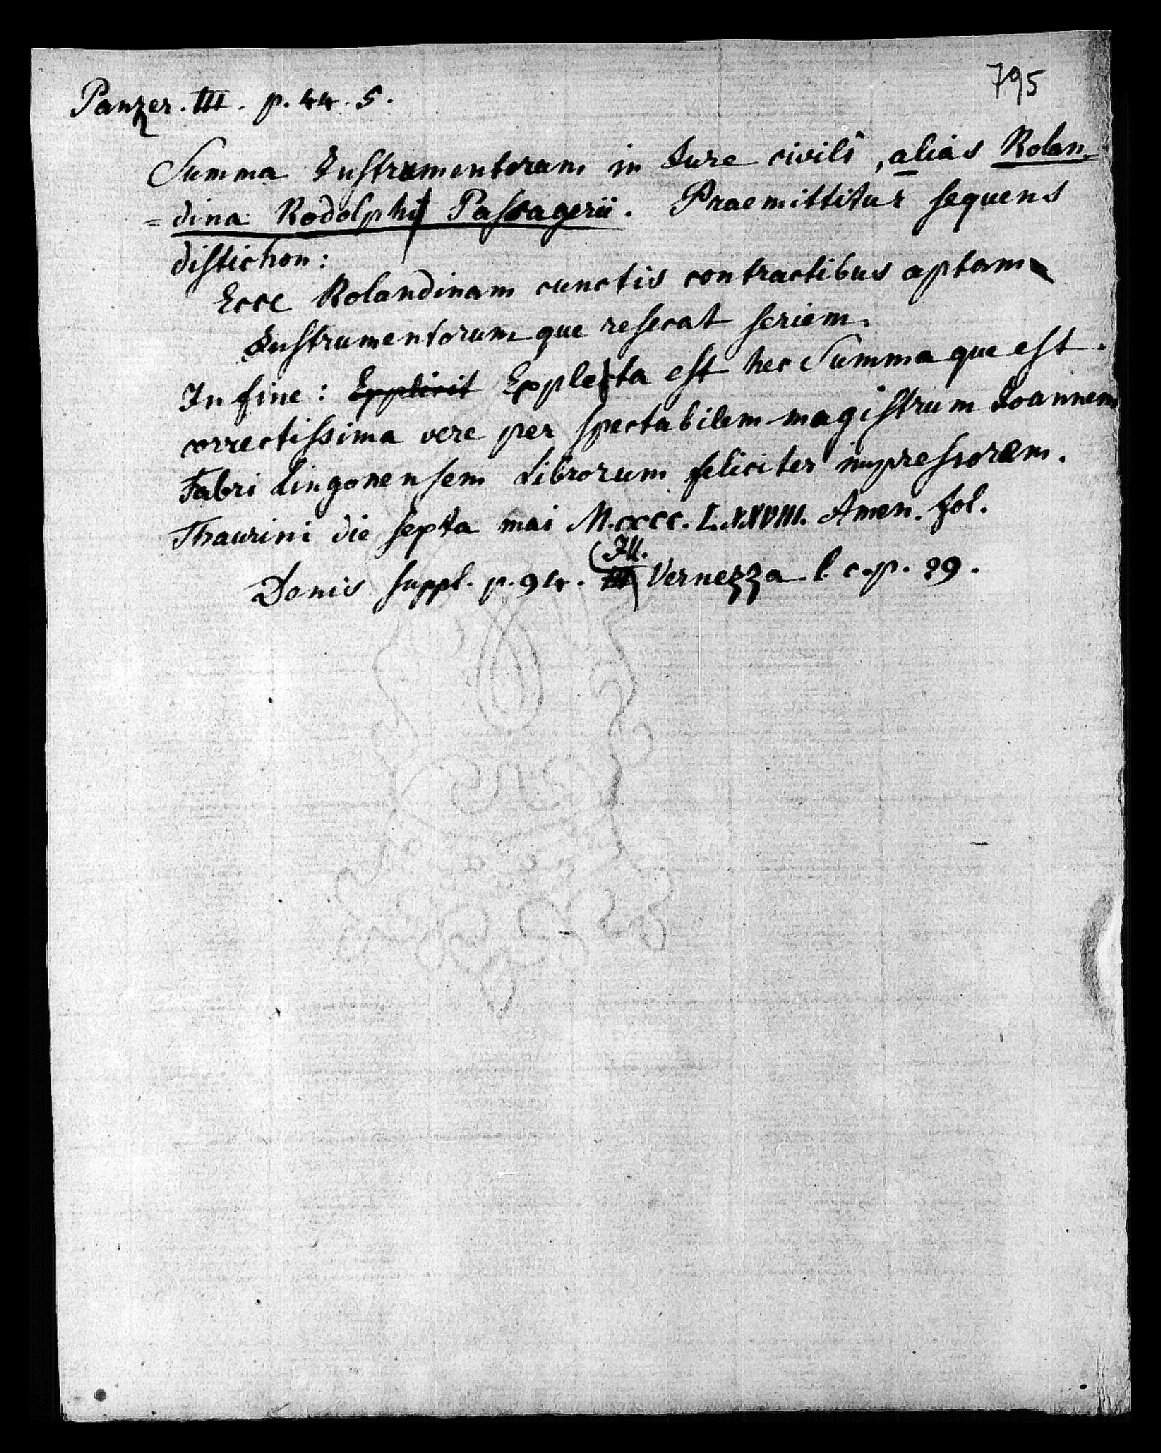 795
Panzer. III. p. 44. 5.
Summa Instrumentorum in Jure civili, alias Rolan=
=dina Rodolphi Passagerii. Praemittitur sequens
distichon:
Ecce Rolandinam cunctis contractibus aptam
Instrumentorum que resecat seriem.
In fine: Explicit Expleta est hec Summa que est
correctissima vere per spectabilem magistrum Joannem
Fabri Lingonensem Librorum feliciter impressorem.
Thaurini die septa mai M.cccc. LXXVIII. Amen. fol.
Denis suppl. p. 94. Vernezza l. c. p. 29.